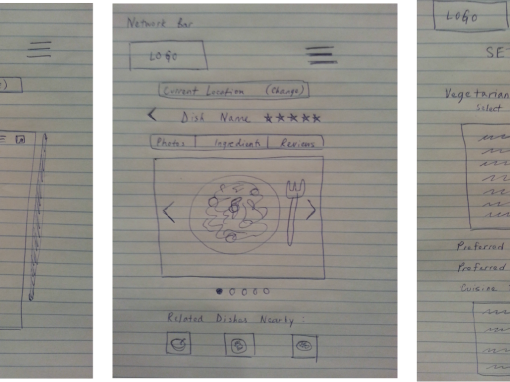 Network Bar
LOGO
Current Location (Change)
Dish Name
Photos Ingredients Reviews
Related Dishes Nearby:
LOGO
SET
Vegetarian
Select
Preferred
Preferred
Cuisine